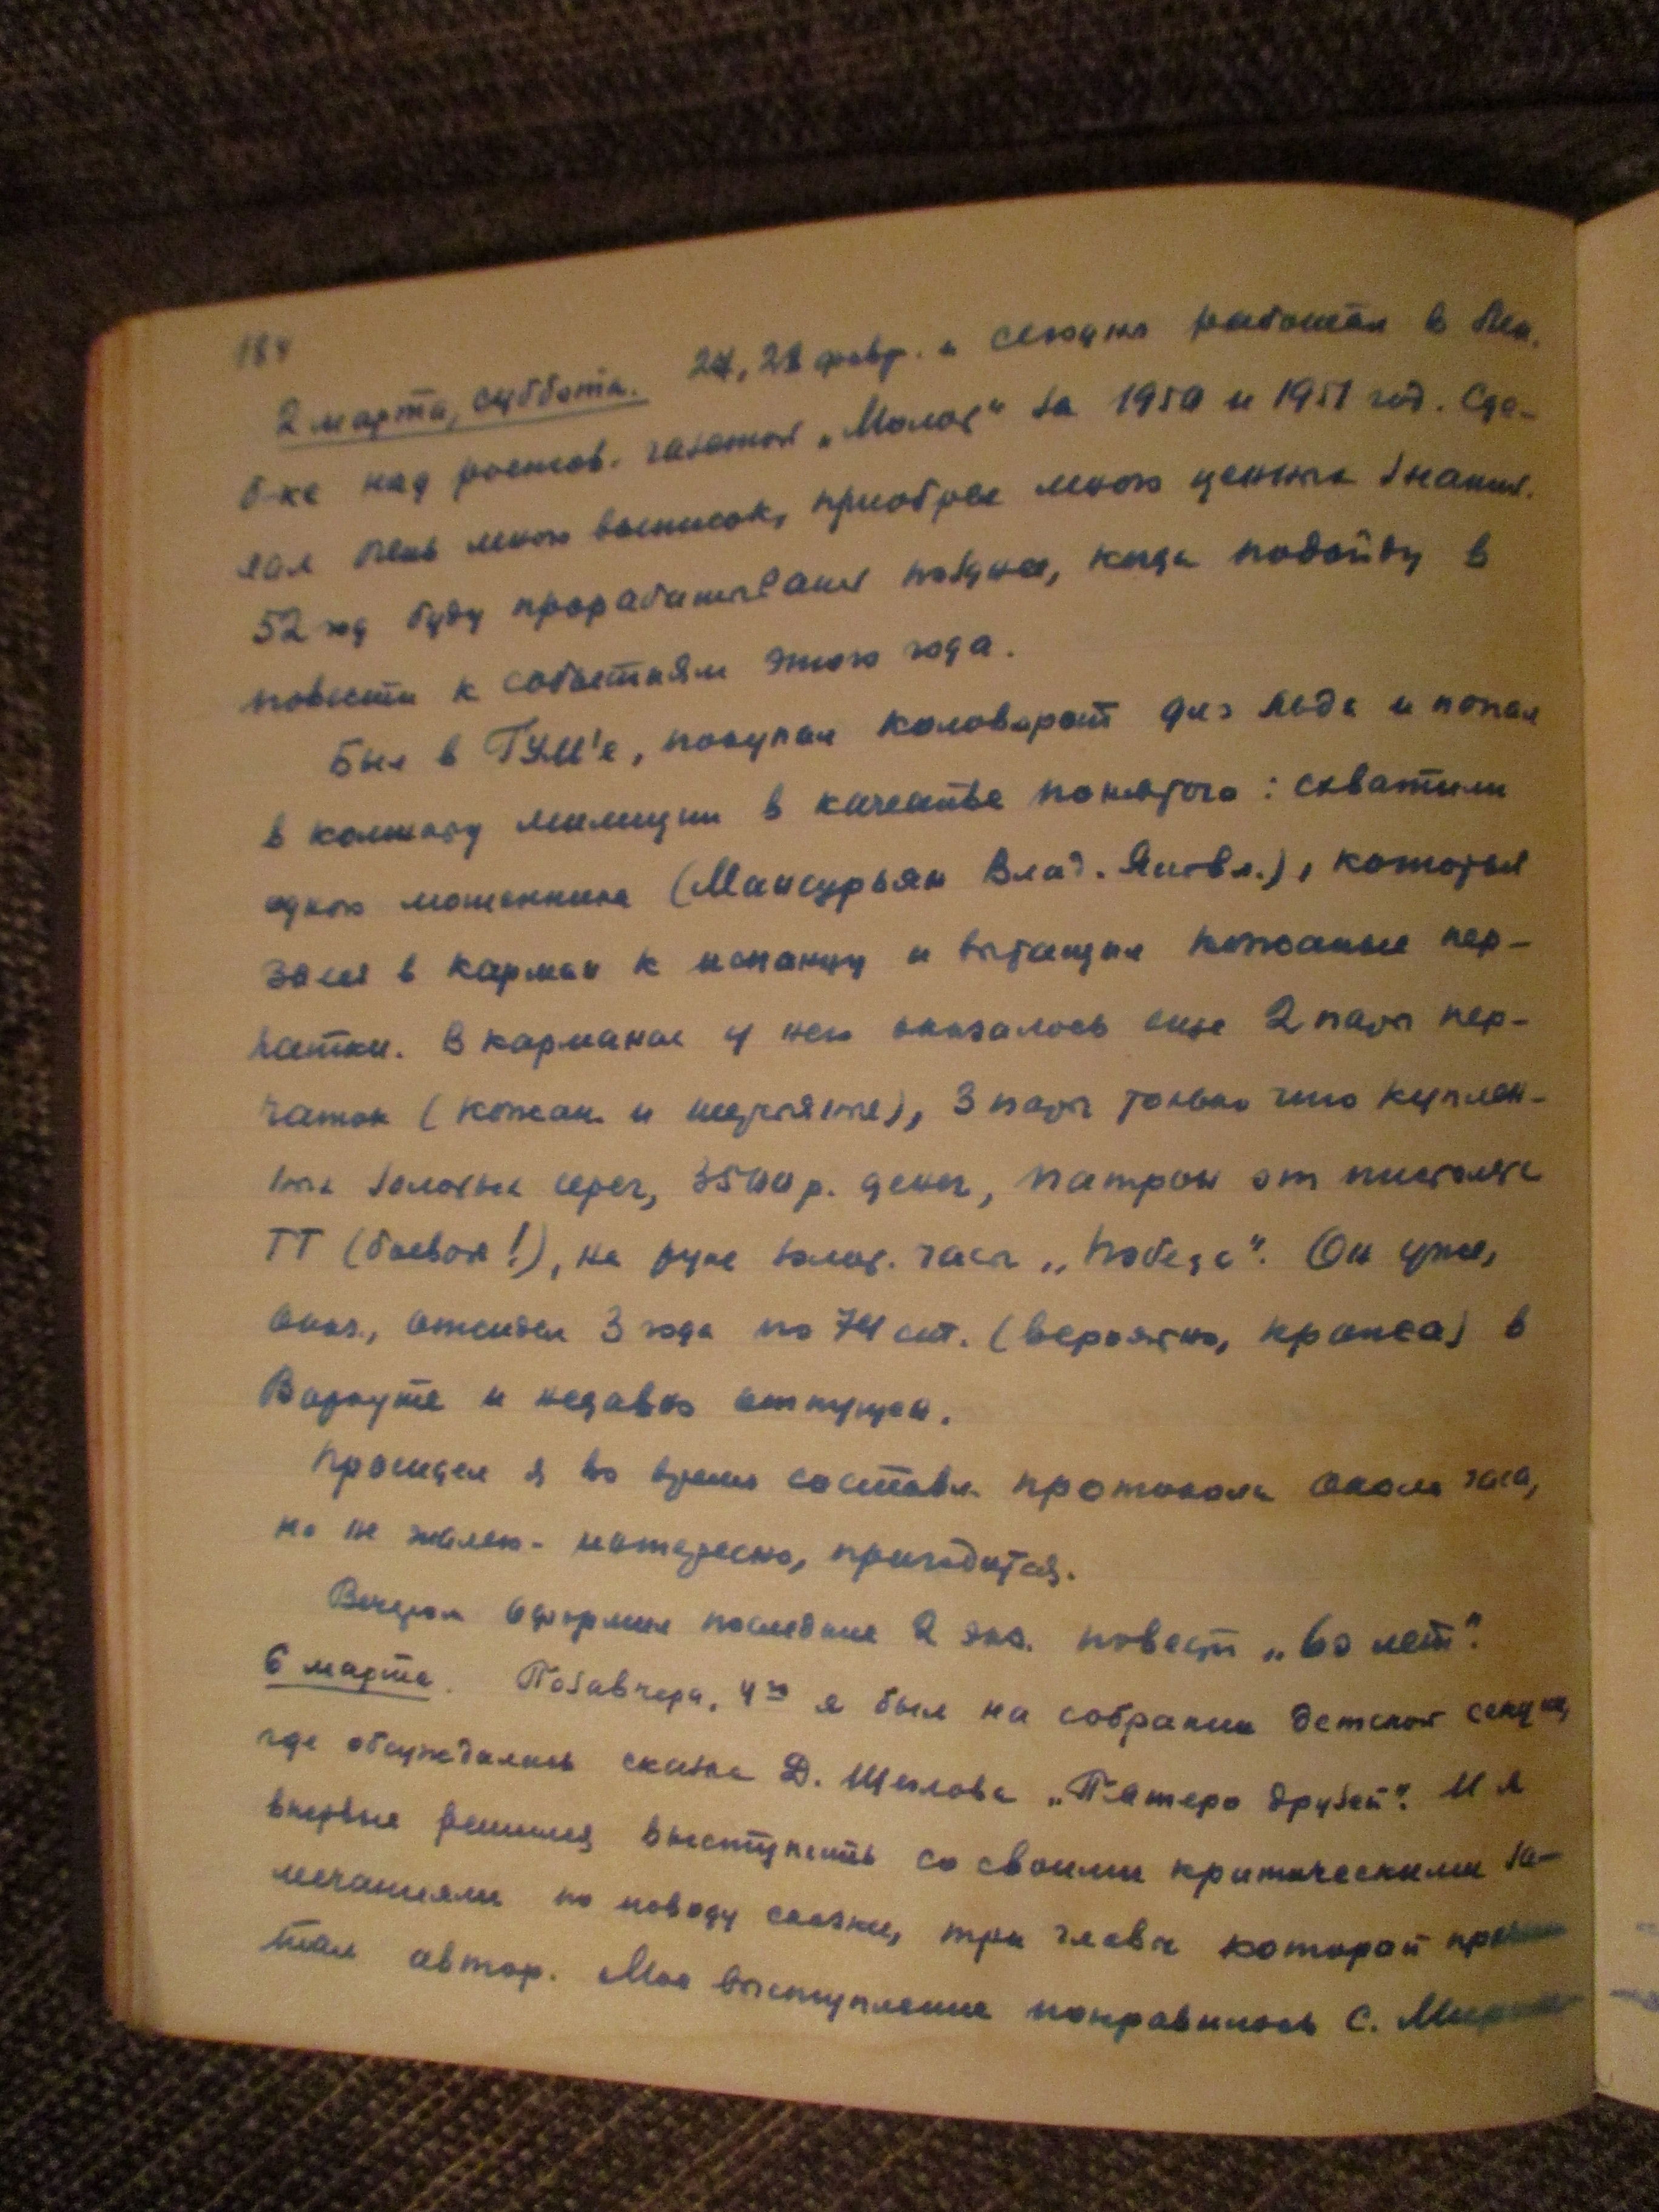 184
2 марта, суббота. 27, 28 февр. и сегодня работал в Лен.
б-ке над ростов. газетой „Молот" за 1950 и 1951 год. Сде-
лал очень много выписок, приобрел много ценных знаний.
52 год буду прорабатывать позднее, когда подойду в
повести к событиям этого года.
Был в ГУМ'е, покупал коловорот для льда и попал
в комнату милиции в качестве понятого: схватили
одного мошенника (Мансурьян Влад. Яковл.), который
залез в карман к испанцу и вытащил кожаные пер-
чатки. В карманах у него оказалось еще 2 пары пер-
чаток (кожан. и шерстяные), 3 пары только что куплен-
ных золотых серег, 3500 р. денег, патрон от пистолета
ТТ (боевой!), на руке золот. часы „Победа". Он уже,
оказ., отсидел 3 года по 74 ст. (вероятно, кража) в
Воркуте и недавно отпущен.
Просидел я во время составл. протокола около часа,
но не жалею - интересно, пригодится.
Вечером оформил последние 2 экз. повести „60 лет".
6 марта. Позавчера, 4го я был на собрании детской секции,
где обсуждалась сказка Д. Щеглова „Пятеро друзей". И я
впервые решился выступить со своими критическими за-
мечаниями по поводу сказки, три главы которой прочи-
тал автор. Мое выступление понравилось С.